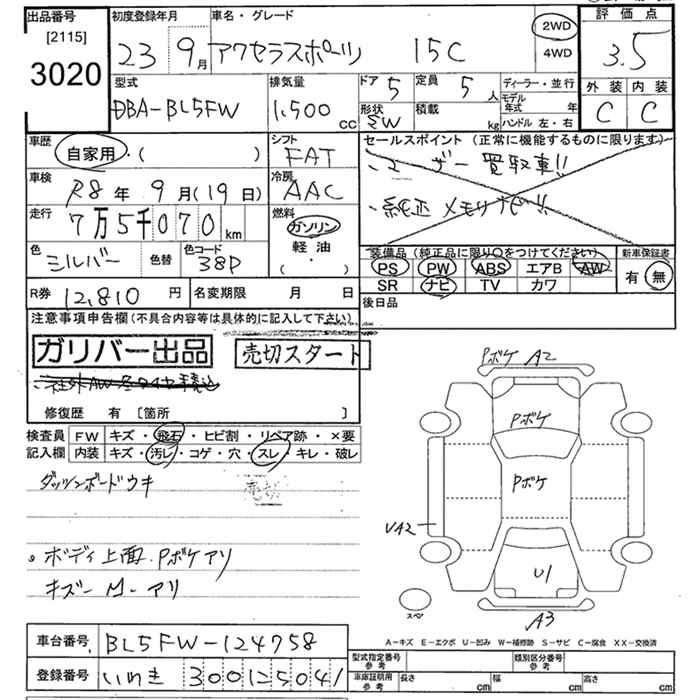 出品番号 初度登録年月 車名・グレード 評価点
[2115] 2WD
3020 23 9月 アクセラスポーツ 15C 4WD 3.5
型式 排気量 ドア 5 定員 5人 ディーラー・並行 外装 内装
DBA-BL5FW 1,500 CC 形状 SW 積載 kg モデル年式 年 C C
ハンドル 左・右
車歴 自家用・( ) シフト FAT セールスポイント (正常に機能するものに限ります)
買取車!!
車検 R8年 9月(19日) 冷房 AAC ・純正 メモリナビ!!
走行 7万5千070km 燃料 ガソリン
軽油
( ・ )
色 シルバー 色替 色コード 38P 装備品 (純正品に限り○をつけてください) 新車保証書
PS PW ABS エアB AW 有 無
SR ナビ TV カワ
R券 12,810円 名変期限 月 日 後日品
注意事項申告欄 (不具合内容等は具体的に記入して下さい)
ガリバー出品 売切スタート
修復歴 有 [箇所 ]
検査員 FW キズ・飛石・ヒビ割・リペア跡・×要
記入欄 内装 キズ・汚レ・コゲ・穴・スレ・キレ・破レ
ダッシンボードウキ
。ボディ上面.Pボケアリ
キズーM-アリ
Pボケ A2
Pボケ
Pボケ
UA2
U1
スペア
A3
A-キズ E-エクボ U-凹み W-補修跡 S-サビ C-腐食 XX-交換済
車台番号 BL5FW-124758 型式指定番号 参考 類別区分番号 参考
登録番号 いわき 300125041 車庫証明用 参考 長さ cm 幅 cm 高さ cm